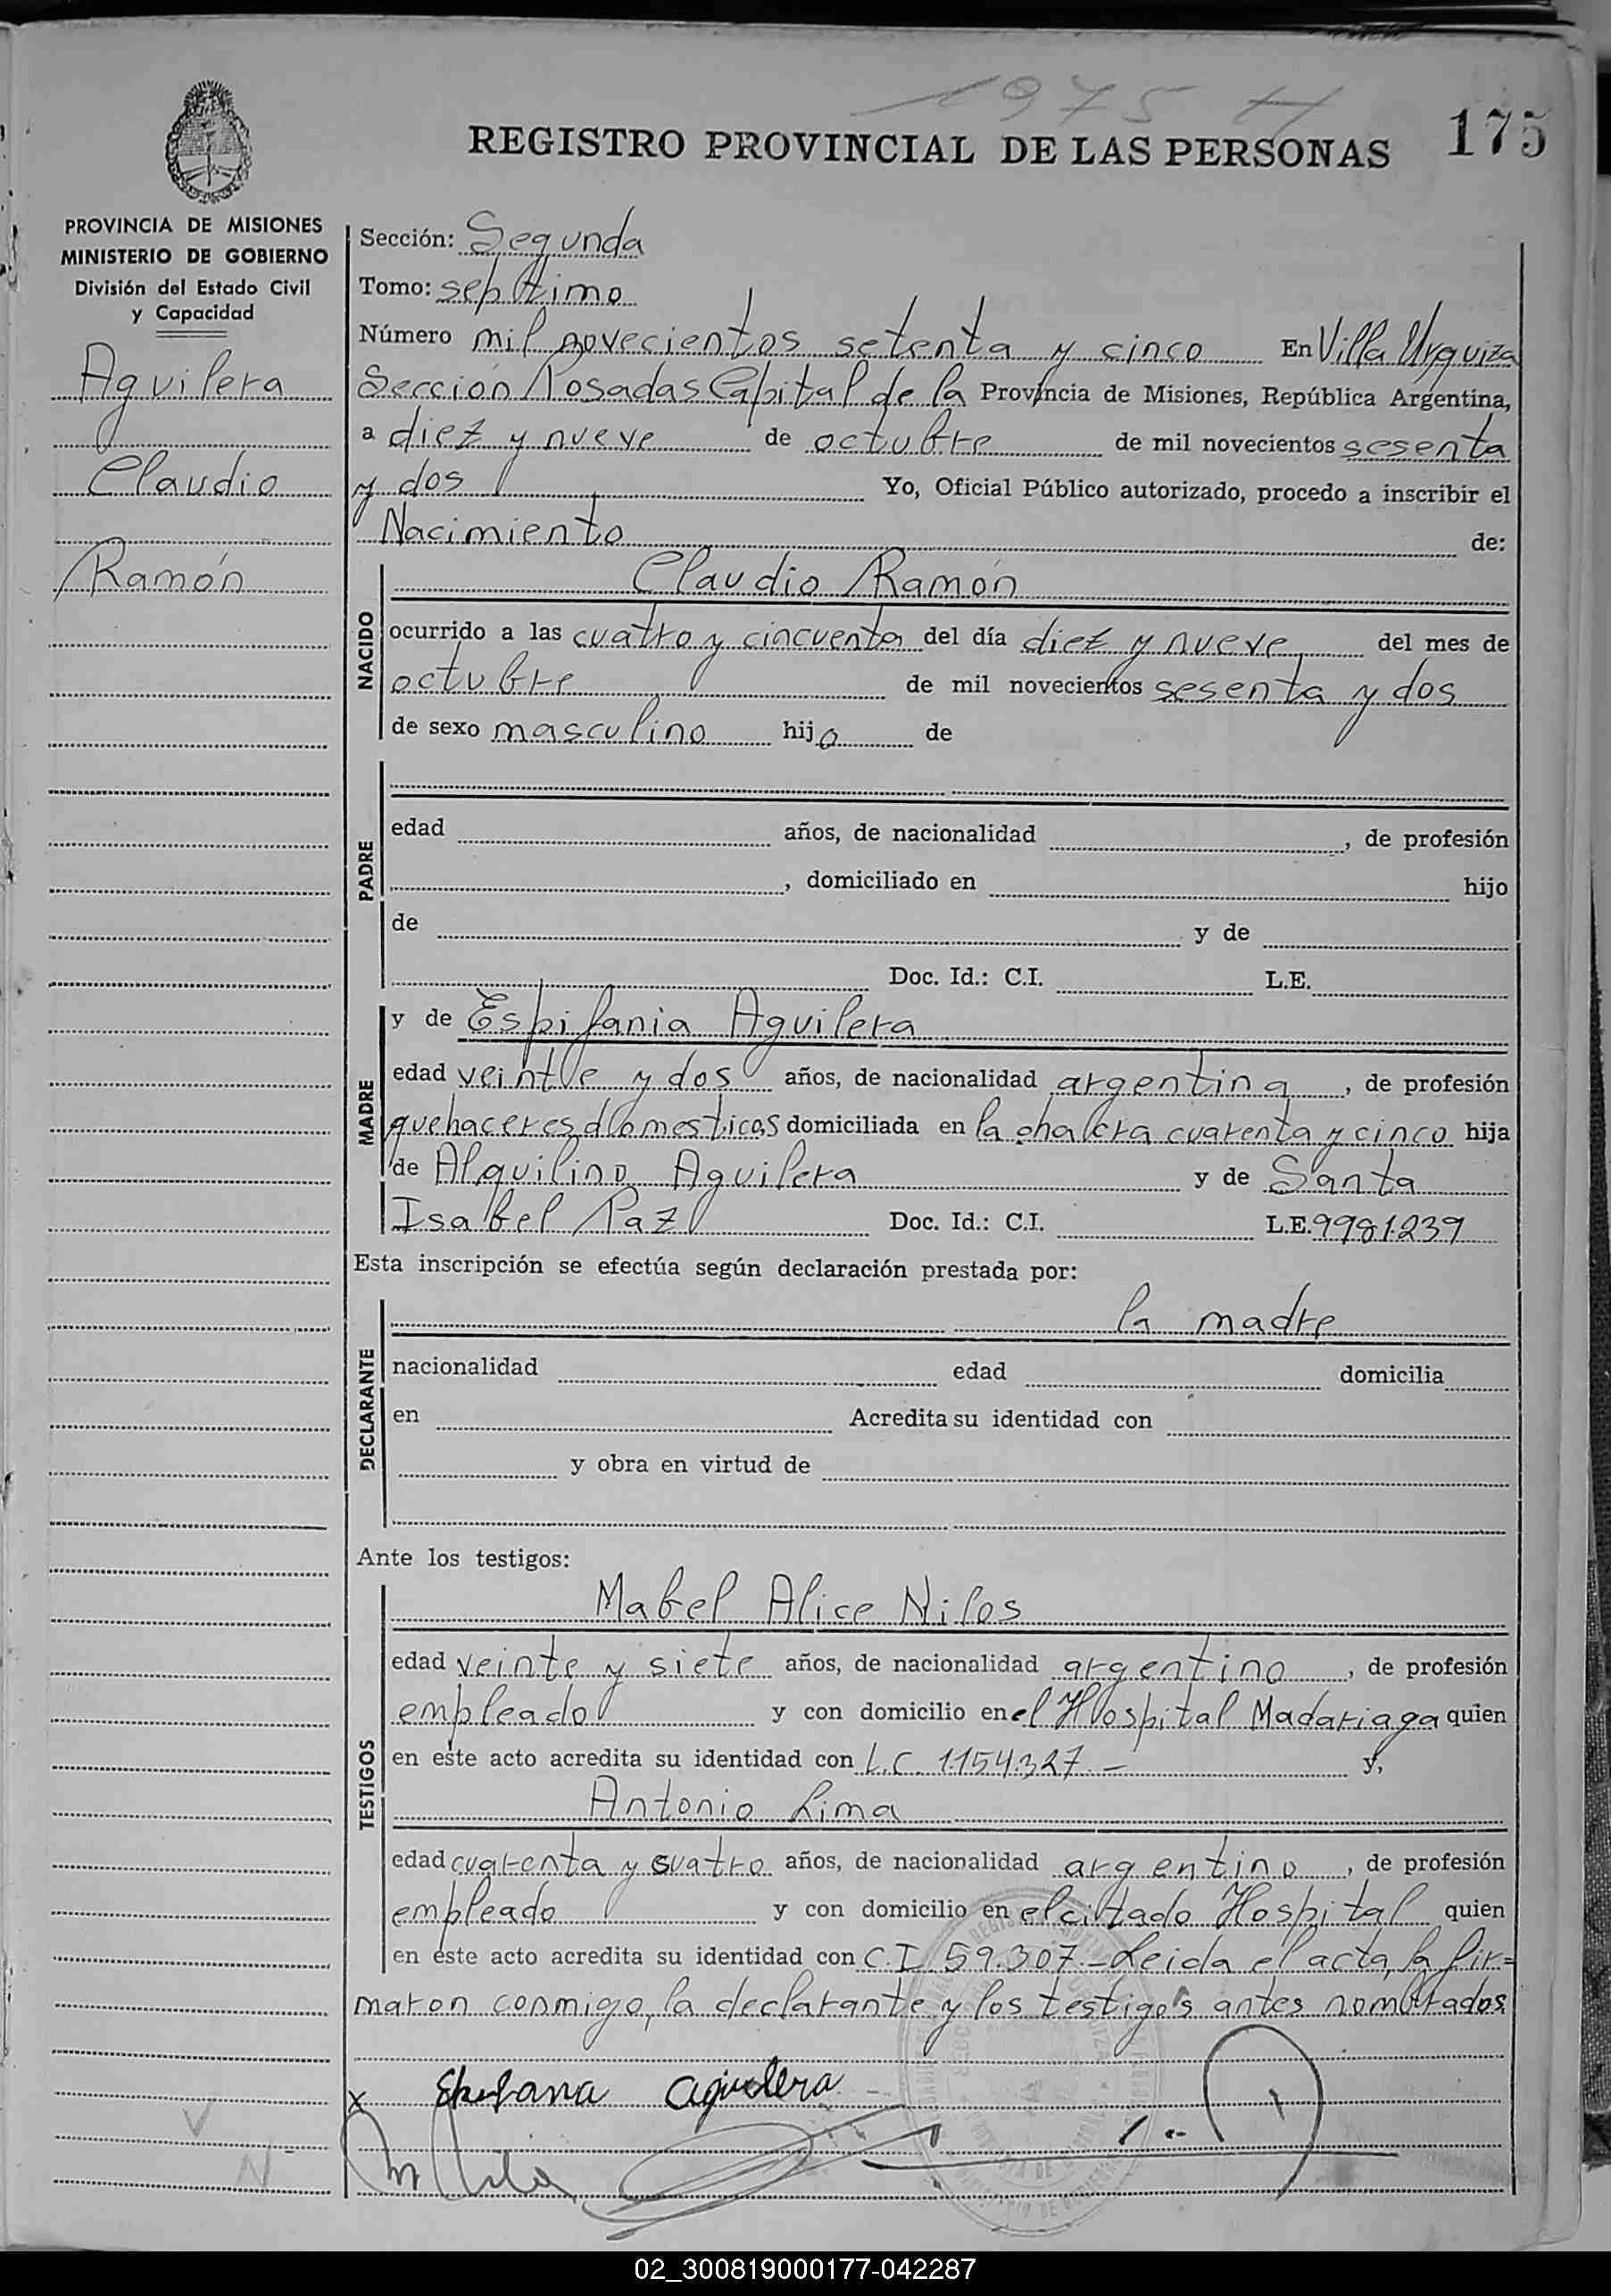 1975 H
REGISTRO PROVINCIAL DE LAS PERSONAS 175
PROVINCIA DE MISIONES
MINISTERIO DE GOBIERNO
División del Estado Civil
y Capacidad
Aguilera
Claudio
Ramón
Sección: Segunda
Tomo: septimo
Número mil novecientos setenta y cinco En Villa Urquiza
Sección Posadas Capital de la Provincia de Misiones, República Argentina,
a diez y nueve de octubre de mil novecientos sesenta
y dos Yo, Oficial Público autorizado, procedo a inscribir el
Nacimiento de:
NACIDO
Claudio Ramón
ocurrido a las cuatro y cincuenta del día diez y nueve del mes de
octubre de mil novecientos sesenta y dos
de sexo masculino hijo de
PADRE
edad años, de nacionalidad , de profesión
, domiciliado en hijo
de y de
Doc. Id.: C.I. L.E.
MADRE
y de Espifania Aguilera
edad veinte y dos años, de nacionalidad argentina, de profesión
quehaceres domesticos domiciliada en la chacra cuarenta y cinco hija
de Alquilino Aguilera y de Santa
Isabel Paz Doc. Id.: C.I. L.E. 9981239
Esta inscripción se efectúa según declaración prestada por:
DECLARANTE
la madre
nacionalidad edad domicilia
en Acredita su identidad con
y obra en virtud de
Ante los testigos:
TESTIGOS
Mabel Alice Nilos
edad veinte y siete años, de nacionalidad argentino, de profesión
empleado y con domicilio en el Hospital Madariaga quien
en este acto acredita su identidad con L.C. 1154327.- y,
Antonio Lima
edad cuarenta y cuatro años, de nacionalidad argentino, de profesión
empleado y con domicilio en el citado Hospital quien
en este acto acredita su identidad con C.I. 59.307.- Leida el acta, la fir=
maron conmigo, la declarante y los testigos antes nombrados
x aguilera
V
N
02_300819000177-042287